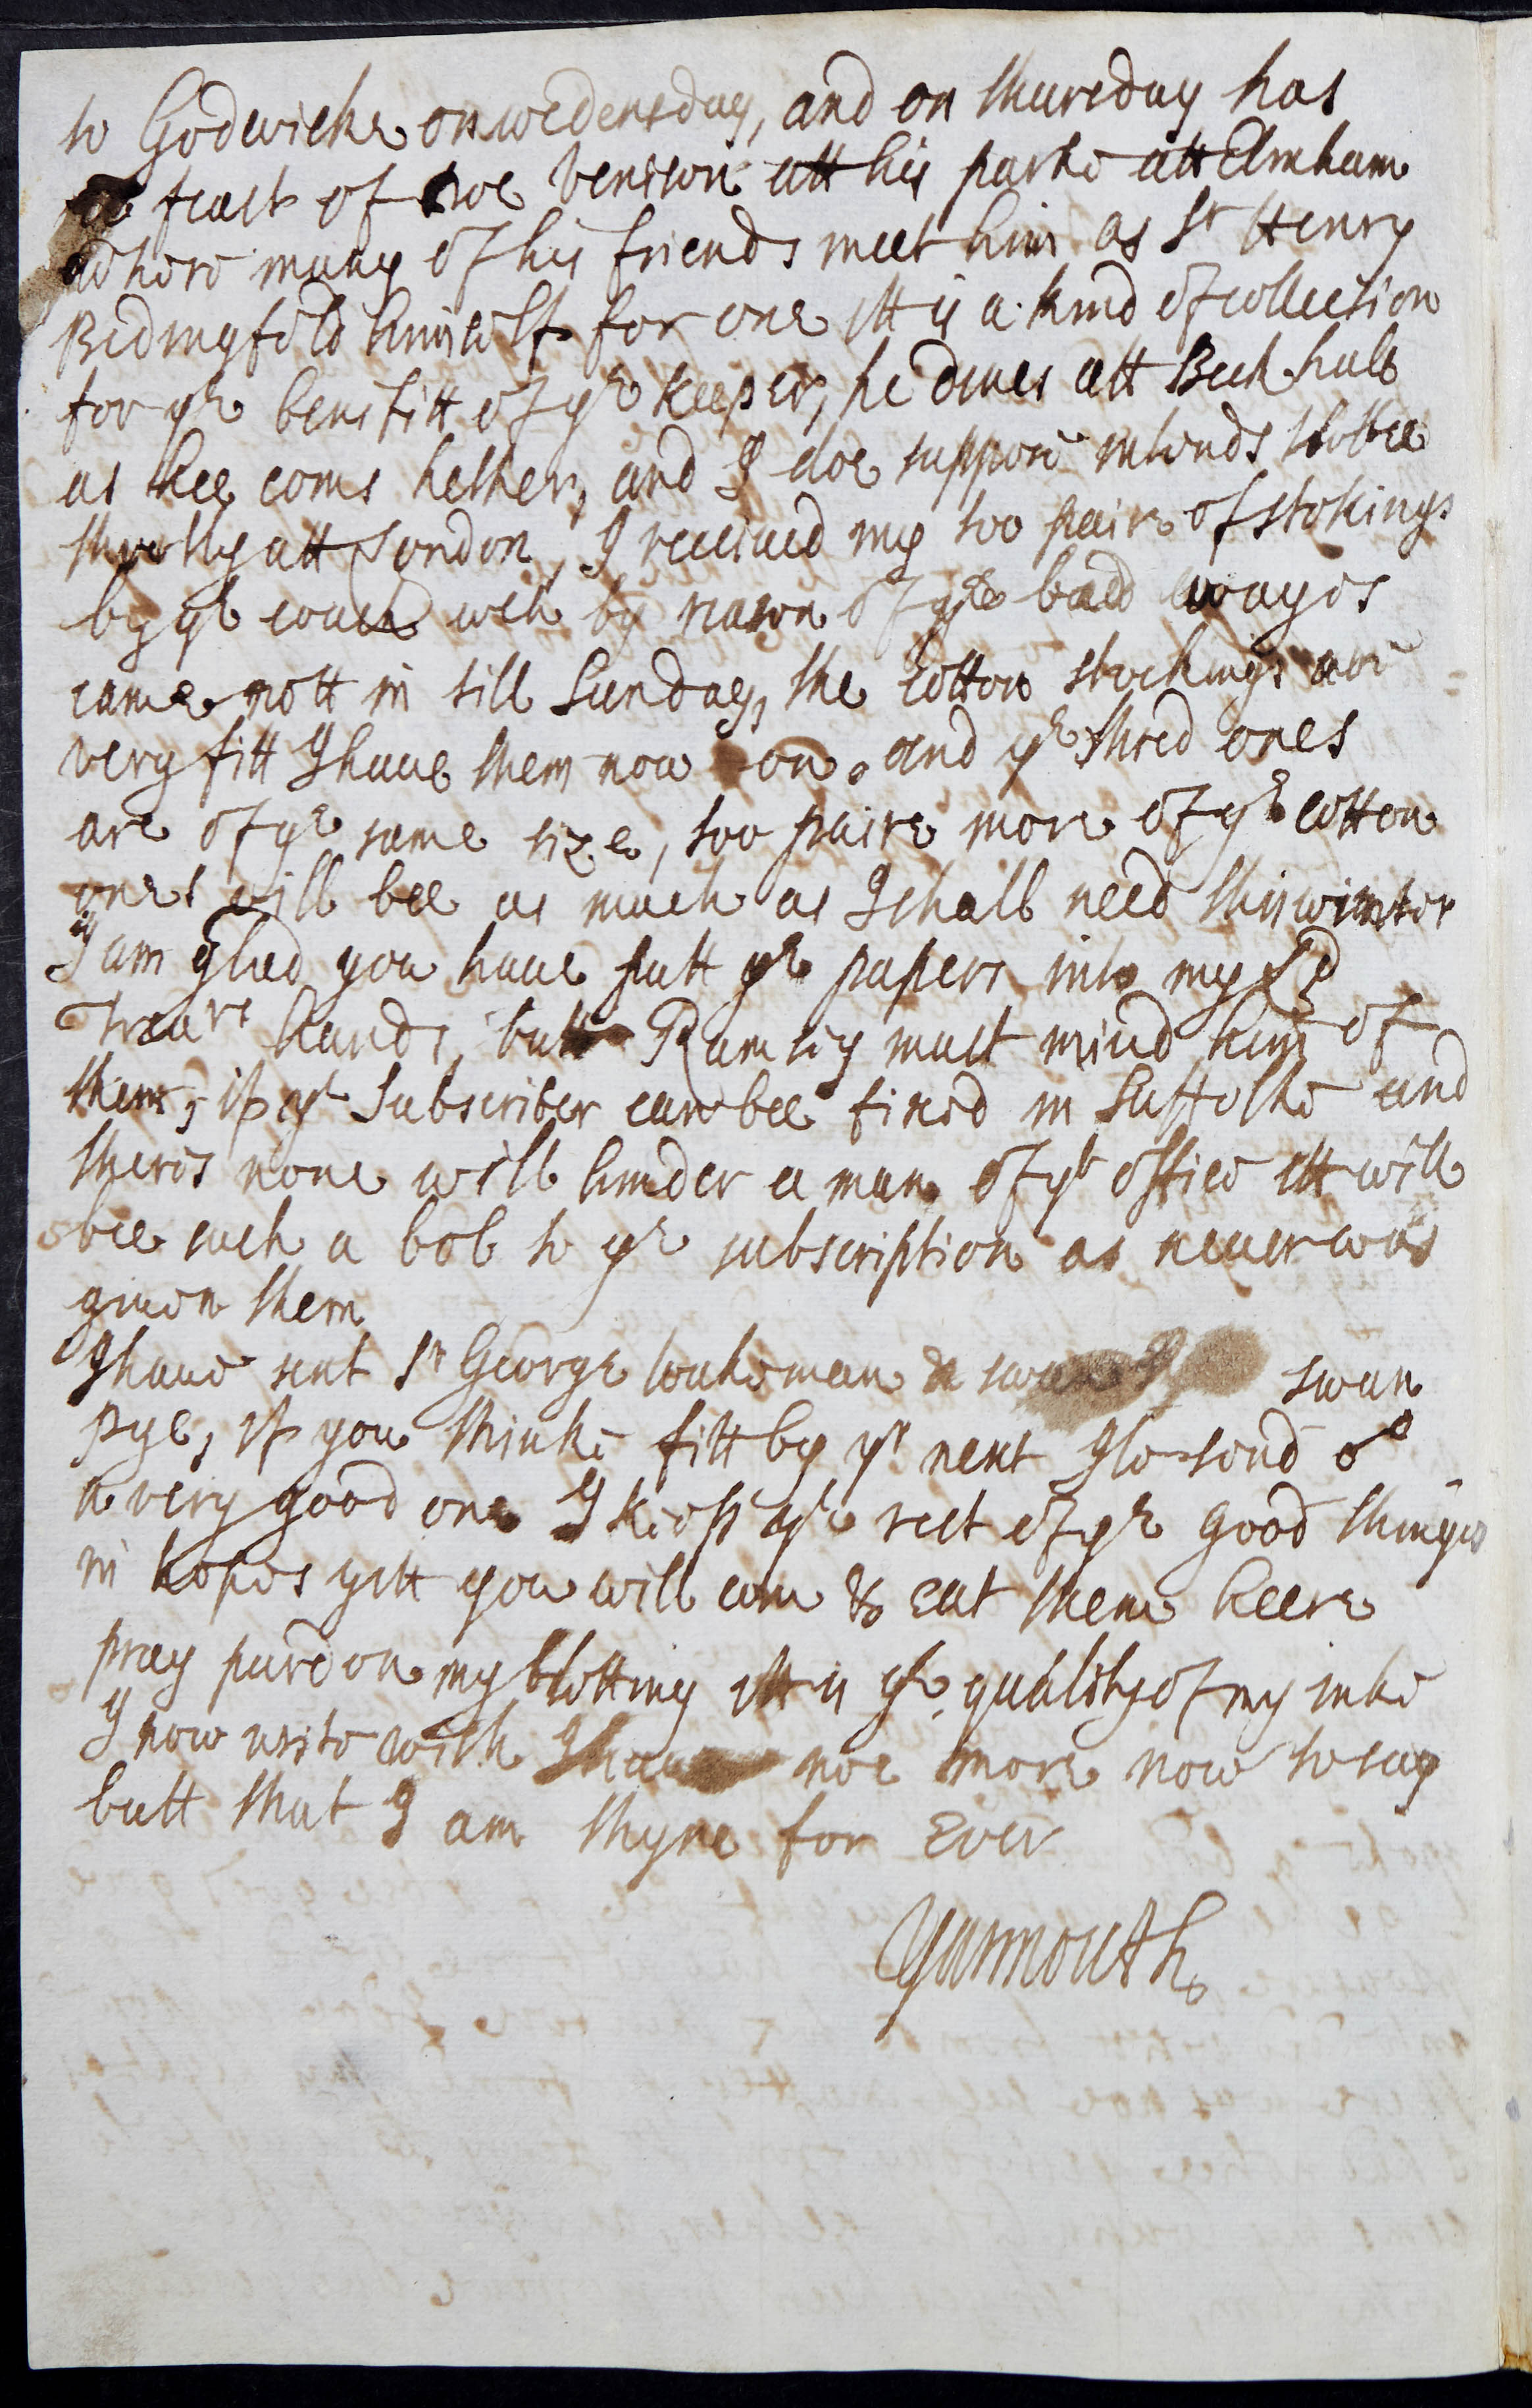 to Godwicke on wedensday, and on thursday has
a feast of Doe venison att his parke att Elmham
where many of his friends meet him as Sr Henry
Bedingfeild himself for one itt is a kind of collection
for ye benifitt of ye keeper, he dines att Beck hall
as hee coms hether, and I doe suppose intends to bee
shortly att London, I received my too pair of stokings
by ye coach wch by reason of ye bad wayes
came nott in till Sunday, the cotton stockings are
very fitt I haue them now on, and ye thred ones
are of ye same size, too paire more of ye cotton
ones will bee as much as I shall need this winter
I am glad you haue putt ye papers into my Ld
Trears hands, butt Ramsey must mind him of
them, if ye Subscriber can bee fixed in Suffolke and
theres none will hinder a man of yt office itt will
bee such a bob to ye subscription as neuer was
giuen them
I haue sent Sr George wakeman a swan swan
pye, if you thinke fitt by ye next Ile send
a very good one I keep ye rest of ye good things
in hopes yitt you will com & eat them heere
pray pardon my blotting itt is ye quality of my inke
I now write with I haue noe more now to say
butt that I am thyne for Ever
Yarmouth